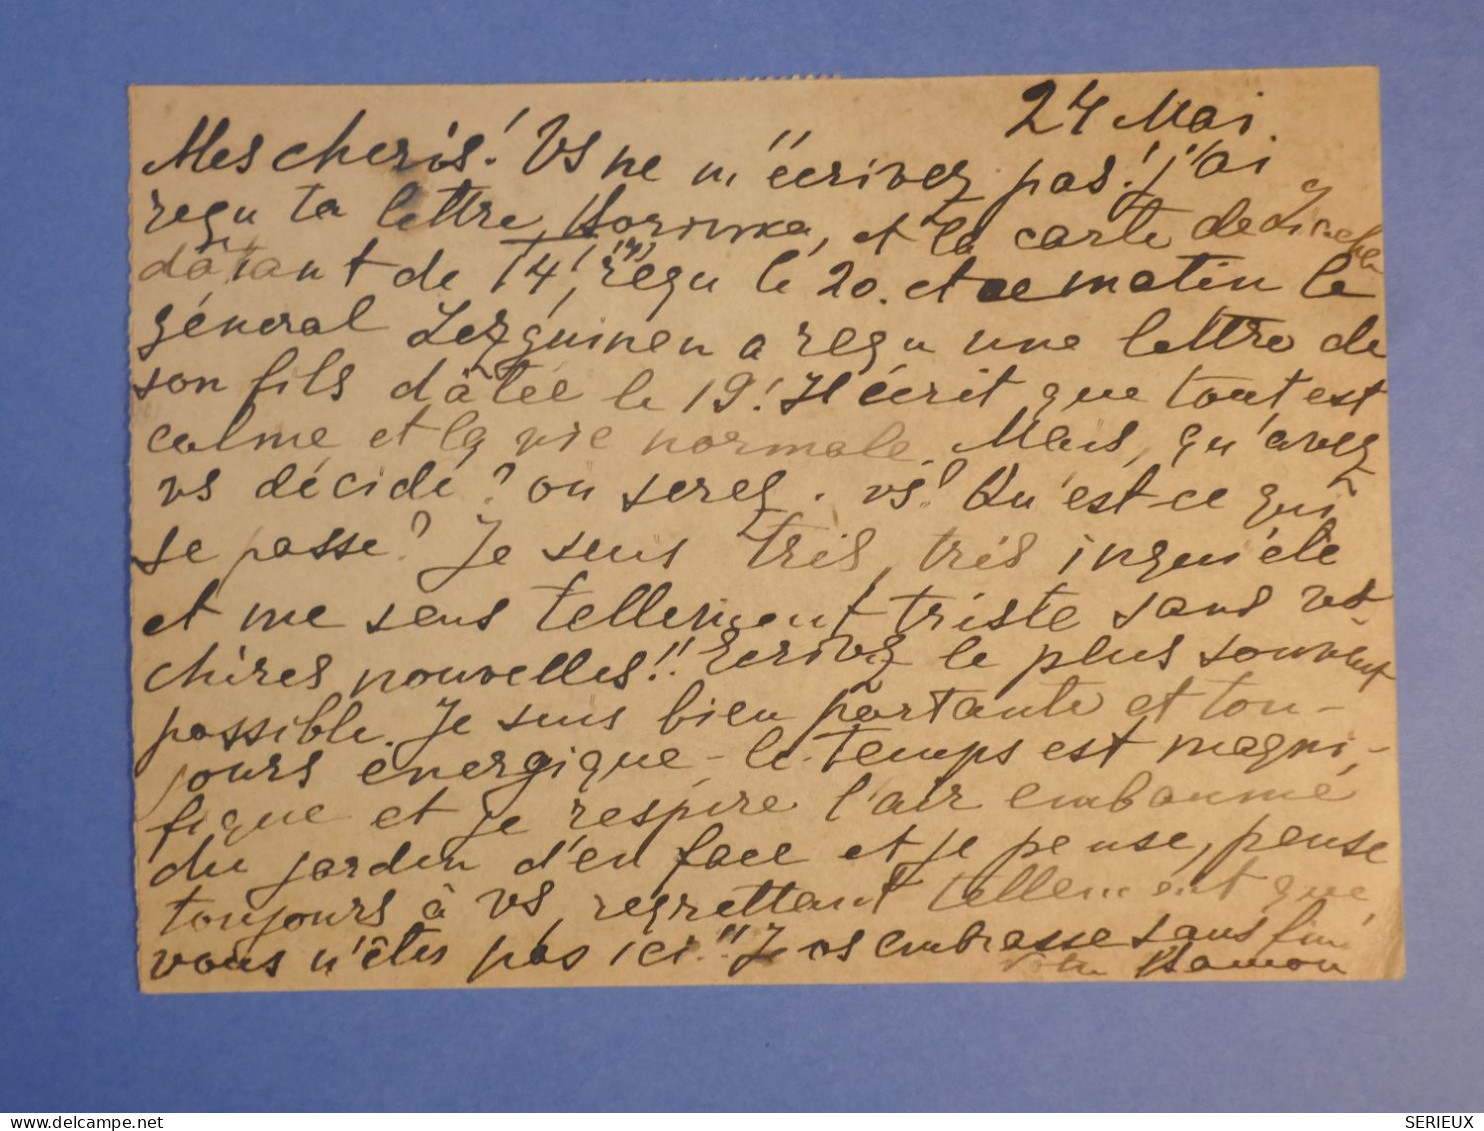 24 Mai.
Mes cheris! Vs ne m'écrivez pas! j'ai
reçu ta lettre, et la carte de
dâtant de 14, reçu le 20. et ce matin le
général a reçu une lettre de
son fils dâtée le 19! Il écrit que tout est
calme et la vie normale. Mais, qu'avez
vs décidé? ou serez-vs? Qu'est-ce qui
se passe? Je suis très, très inquiéte
et me sens tellement triste sans vos
chères nouvelles!! Ecrivez le plus souvent
possible. Je suis bien portante et tou-
jours energique - le temps est magni-
fique et je respire l'air embaumé
du jardin d'en face et je pense, pense
toujours à vs, regrettant tellement que
vous n'êtes pas ici!! Je vs embrasse sans fin
Votre Maman
SERIEUX
www.delcampe.net